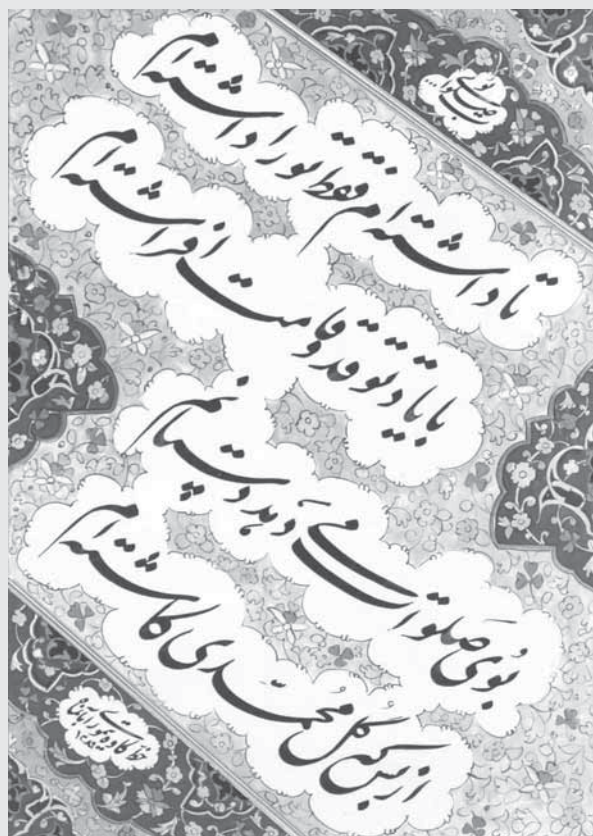 تا داشته ام فقط تو را داشته ام
با یاد تو قد و قامت افراشته ام
بُوی صلوات می دهد دستانم
از بس که گُل مُحمّدی کاشته ام